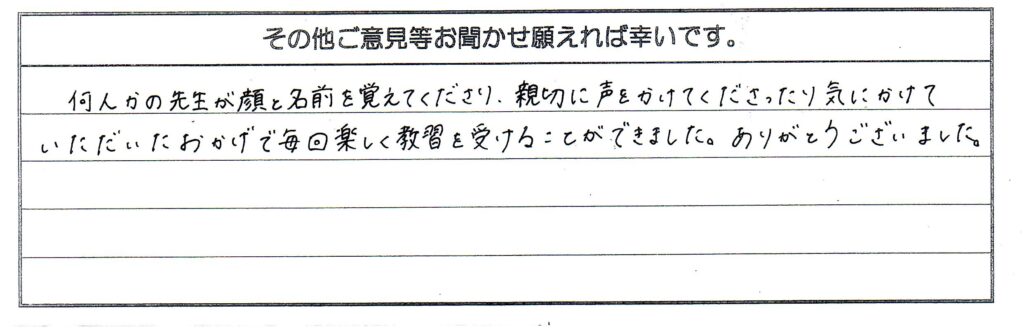 その他ご意見等お聞かせ願えれば幸いです。
何人かの先生が顔と名前を覚えてくださり、親切に声をかけてくださったり気にかけて
いただいたおかげで毎回楽しく教習を受けることができました。ありがとうございました。